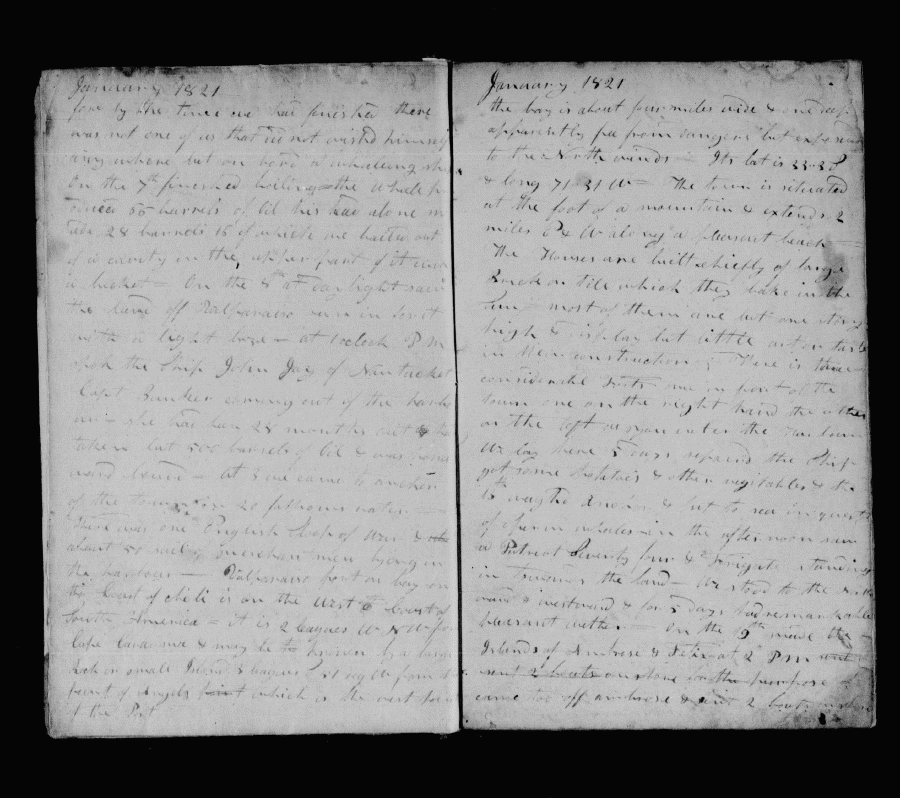 January 1821
for by the time we had finished there
was not one of us that did not wished himself
any where but on bord a whaleing
On the 7th finished boiling the whale
55 barrels of Oil his head alone
28 barrels 15 of which we bailed out
of a cavity in the upper part of it
a bucket - On the 8th at daylight saw
the land of Valparaiso
with a light - at 1 oclock P M
spok the Ship John Jay of Nantucket
Capt Bunker coming out of the
she had been 28 months out &
taken but 500 barrels of Oil & was
bound - at 3 we came to anchor
of the town in 20 fathoms water -
There was one English Sloop of War &
about 50 sail of merchant men lying in
the harbour - Valparaiso port or bay on
the Coast of Chili is on the West Coast of
South America - it is 2 leagues
Cape & may be known by a large
Rock or small Island 3 leagues from
point of Angels which is the west
of the Port
January 1821
the bay is about four miles wide & one deep
apparently free from dangers but exposed
to the North winds - Its lat is 33-
& long 71-31 W - The town is situated
at the foot of a mountain & extends 2
miles E & W along a pleasant beach
The Houses are built chiefly of large
Brick or tile which they bake in the
Sun most of them are but one story
high & display but little art or taste
in their construction; There is three
considerable Forts one in front of the
town one on the right hand the other
on the left as you enter the Harbour
We lay here 5 days repaired the Ship
got some Potatoes & other vegitables & the
weighed Anchor & put to sea in quest
of sperm whales in the afternoon saw
a Patriot Seventy four & Frigate standing
in towards the land - We stood to the North
ward & westward & for 5 days had remarkable
pleasant wether - On the 19th made the
Islands of Ambrose & Felix at 2 P M
sent 2 boats on shore for the purpose
came too off ambrose & sent 2 boats